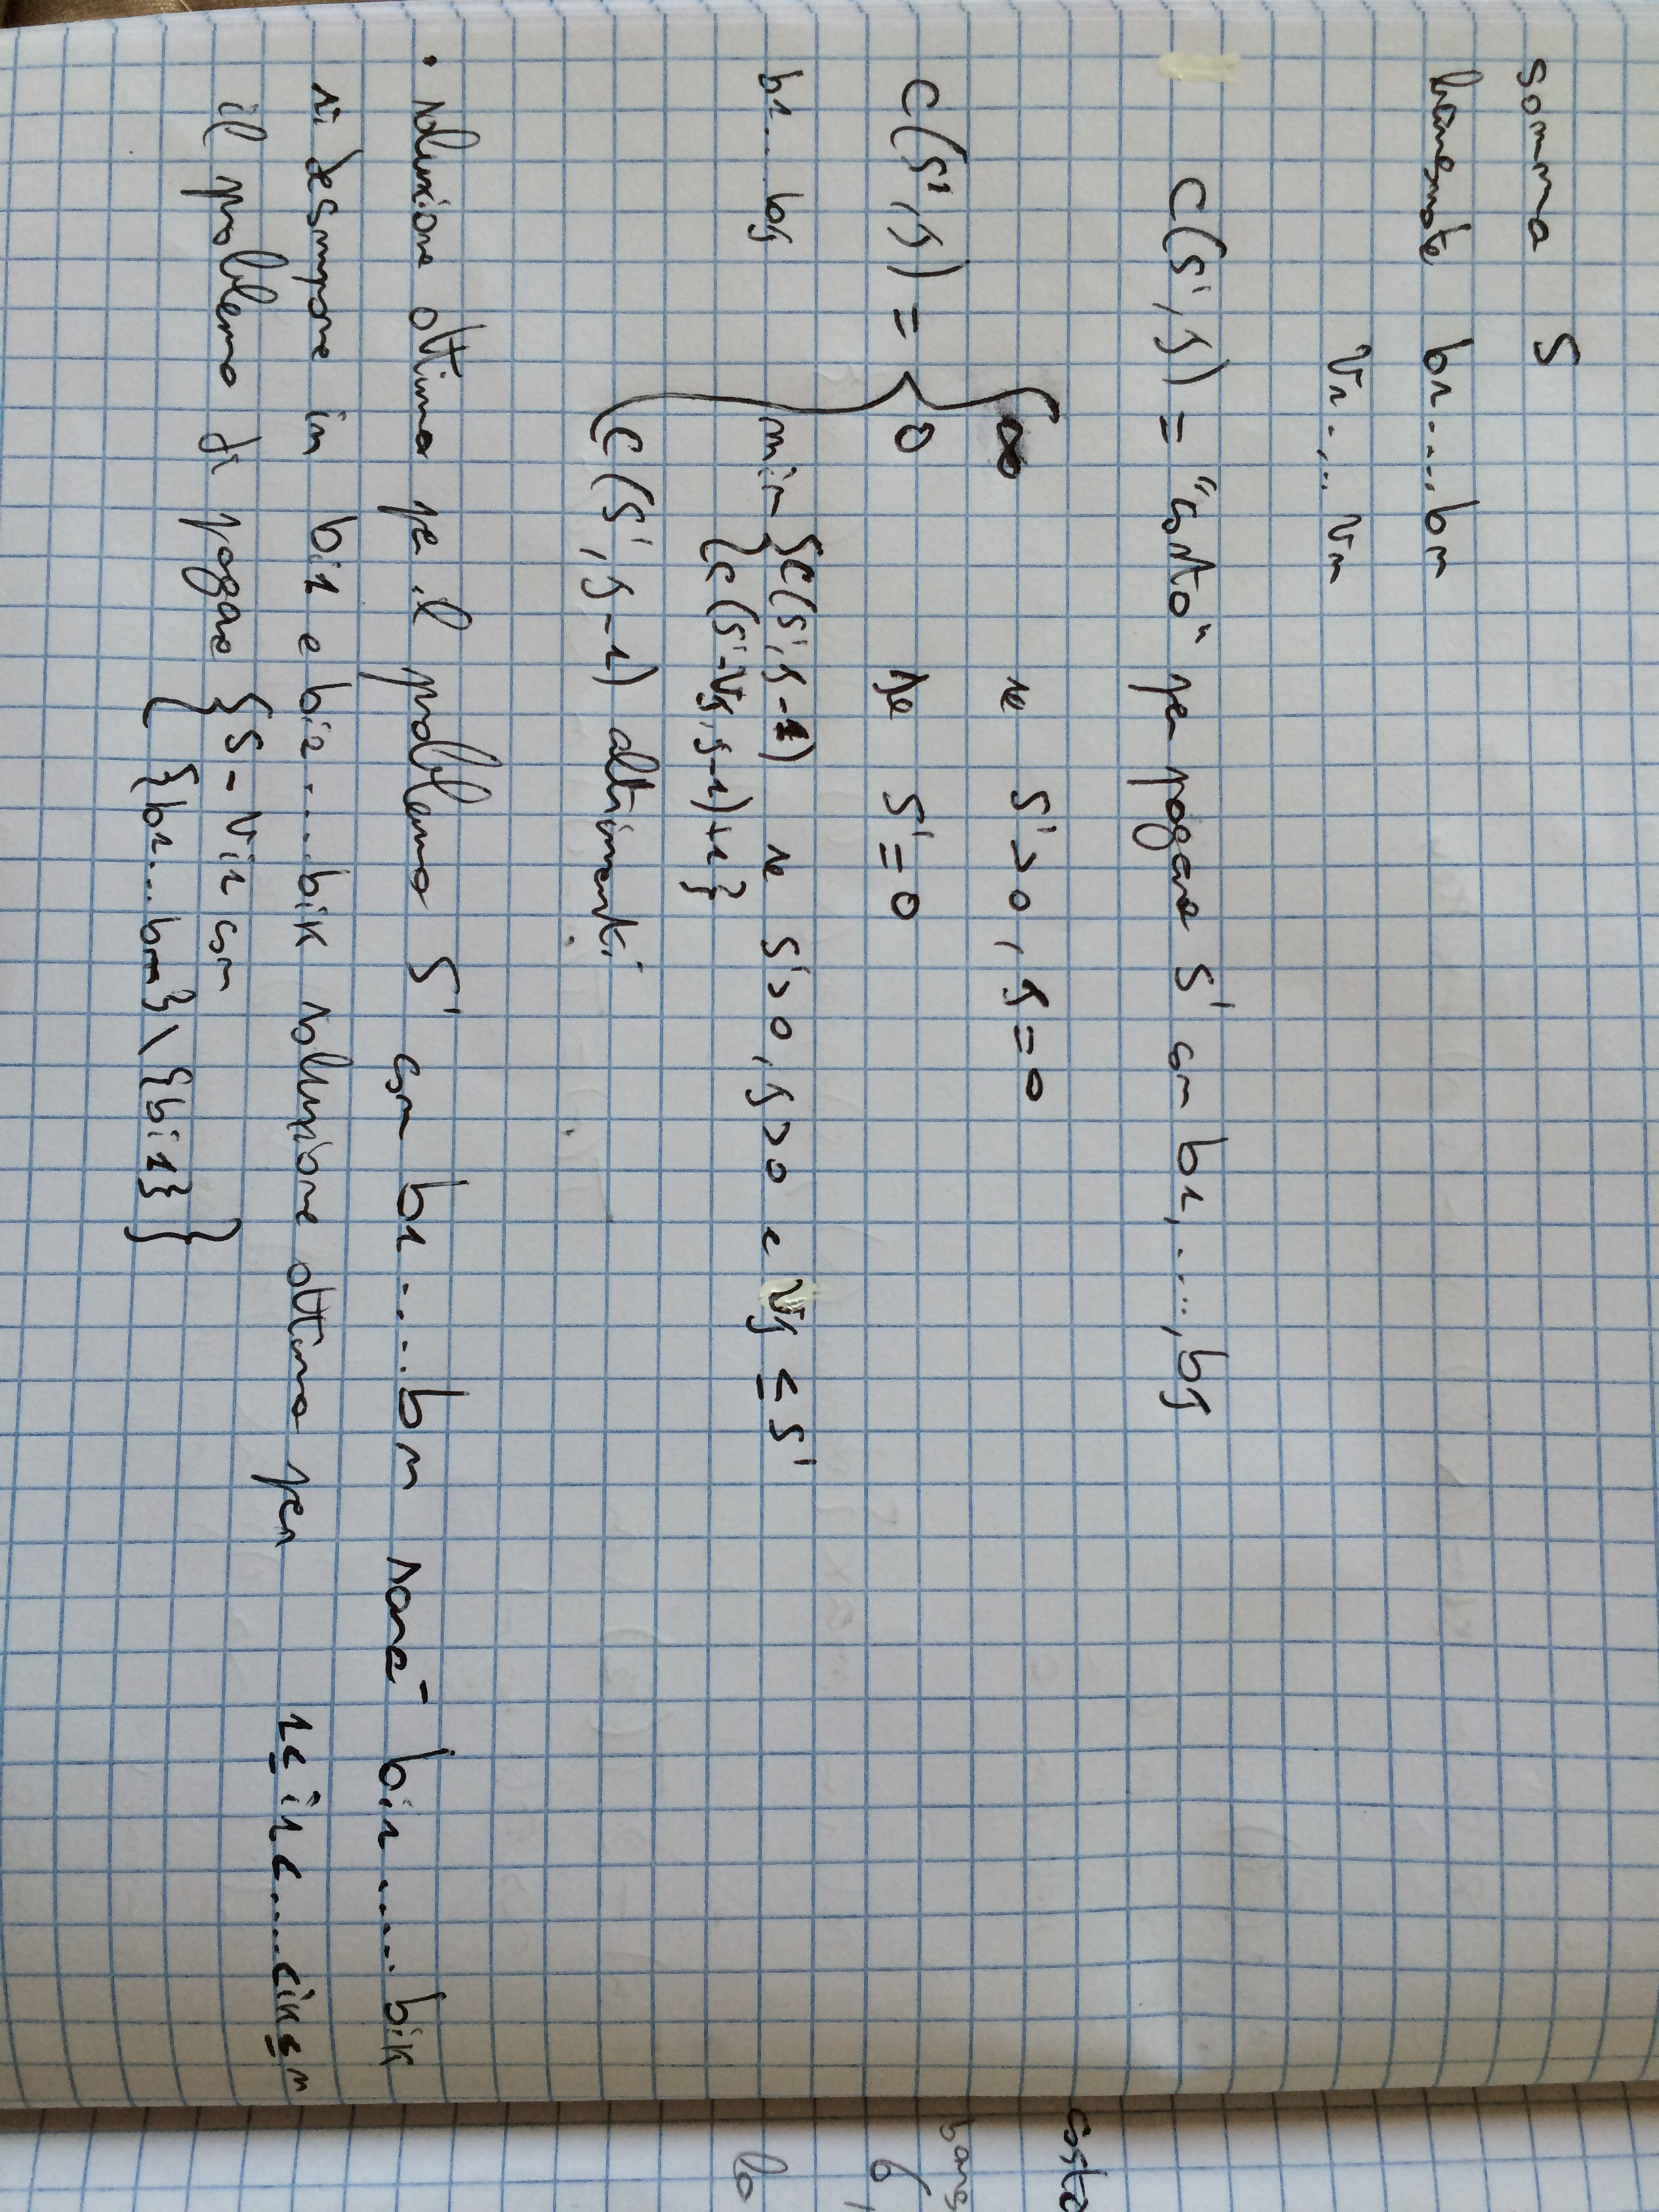 somma S
banconote b1....bn
v1.... vn
C(S',j) = "costo" per pagare S' con b1,....,bj
∞ se S'>0, j=0
C(S',j) = { 0 se S'=0
b1...bj min { C(S',j-1) se S'>0, j>0 e vj ≤ S'
{ C(S'-vj, j-1)+1 }
C(S', j-1) altrimenti
• soluzione ottima per il problema S' con b1.....bn sarà bi1 ...... bik
si decompone in bi1 e bi2....bik soluzione ottima per 1≤i1<....<ik≤n
il problema di pagare { S - vi1 con
{b1...bn} \ {bi1} }
costo
banc
6,
lo